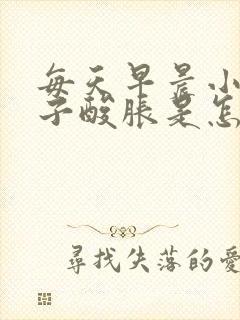 每天早晨小
子酸胀是怎
尋找失落的愛